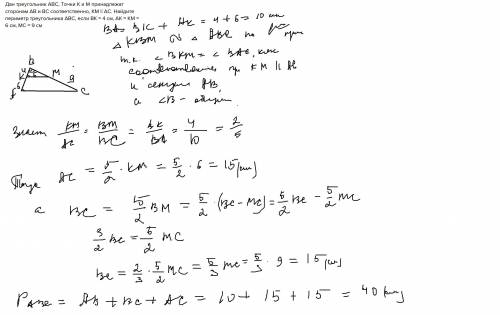 Дан треугольник ABC. Точки K и M принадлежат
сторонам AB и BC соответственно, KM || AC. Найдите
периметр треугольника ABC, если BK = 4 см, AK = KM =
6 см, MC = 9 см
BA = BK + AK = 4 + 6 = 10 см
△ KBM ∾ △ ABC по
т.к. ∠ BKM = ∠ BAC, как
соответственные при KM ||
и секущей AB,
а ∠B - общий.
B
4
K
M
6
9
A
C
Значит KM/AC = BM/BC = BK/BA = 4/10 = 2/5
Тогда AC = 5/2 · KM = 5/2 · 6 = 15 (см)
а BC = 5/2 BM = 5/2 · (BC - MC) = 5/2 BC - 5/2 MC
3/2 BC = 5/2 MC
BC = 2/3 · 5/2 MC = 5/3 MC = 5/3 · 9 = 15 (см)
PABC = AB + BC + AC = 10 + 15 + 15 = 40 (см)